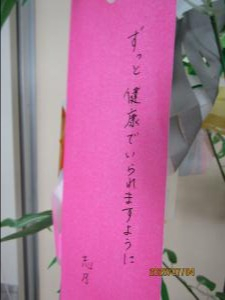 ずっと健康でいられますように